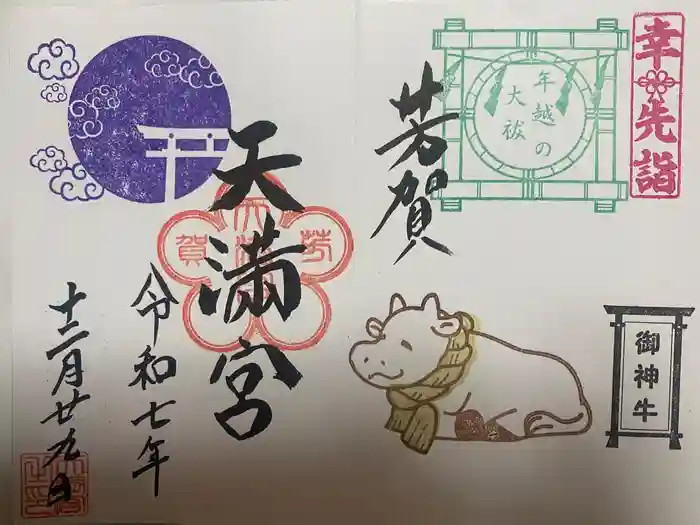 幸先詣
年越の
大祓
芳賀
御神牛
天満宮
芳賀
令和七年
十二月廿九日